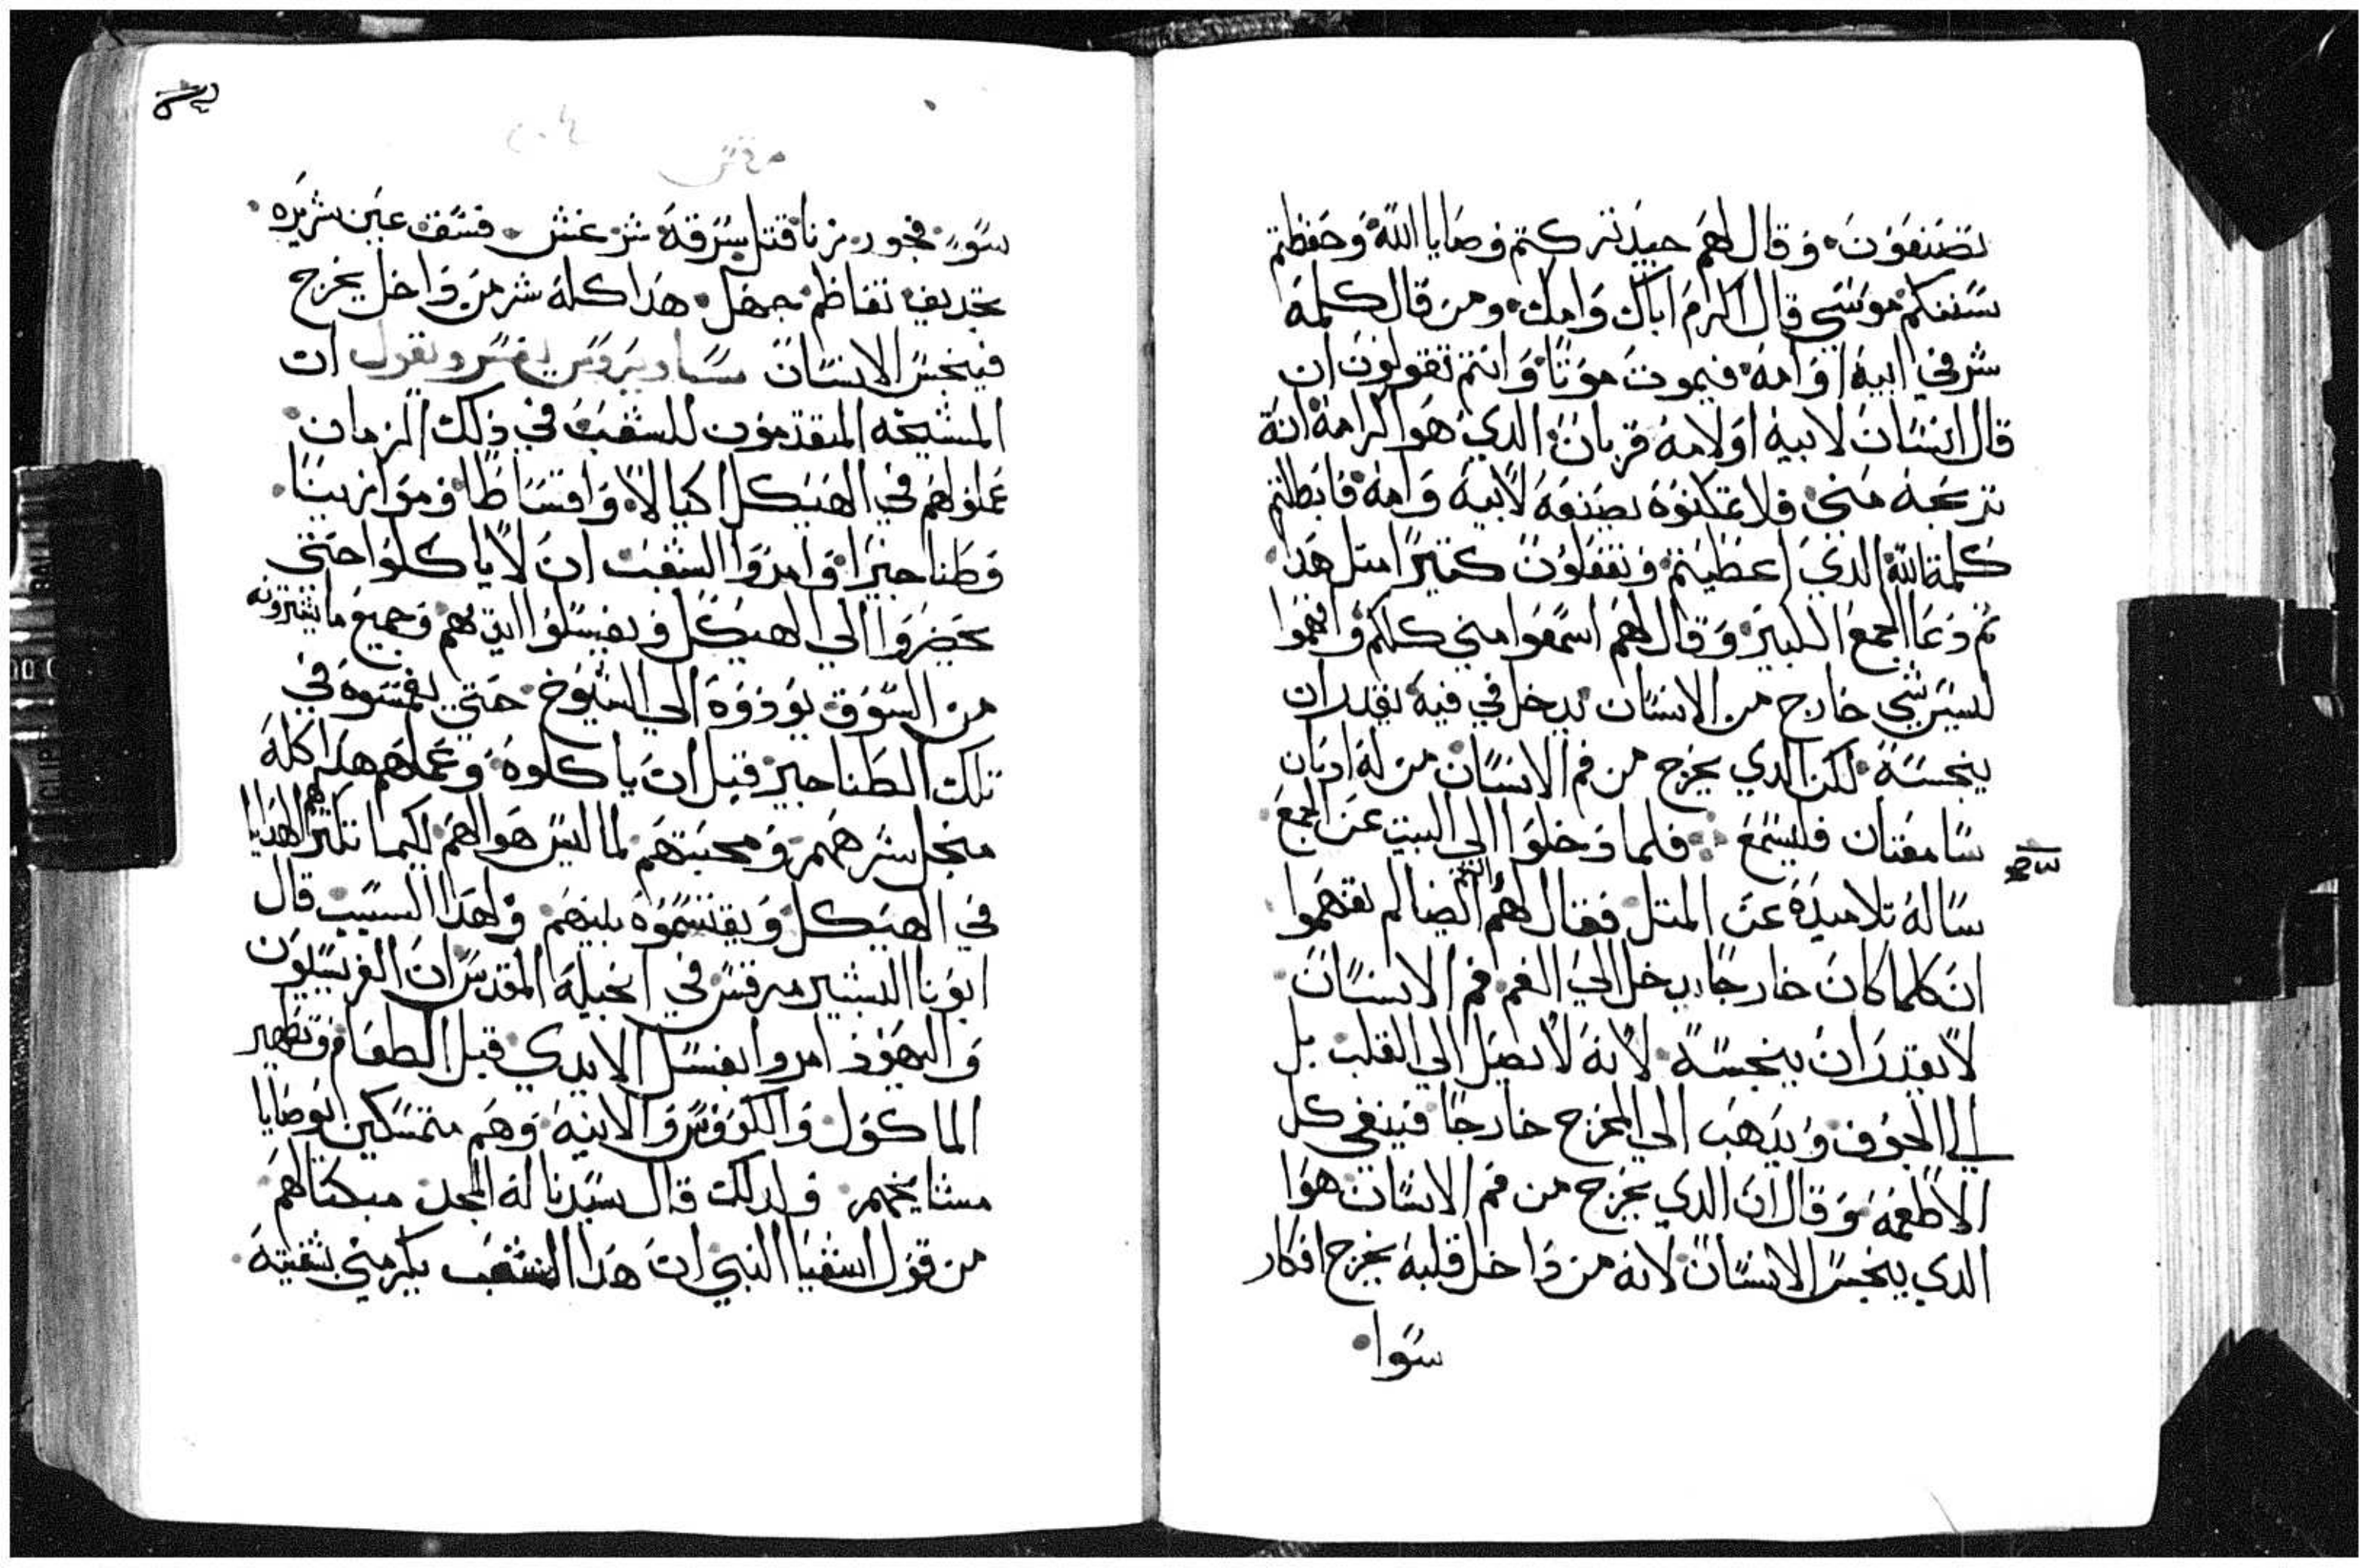 تصنعون وقال لهم جيد تركتم وصايا الله وحفظتم
سننكم موسي قال اكرم اباك وامك ومن قال كلمة
شر في ابيه او امه فيموت موتا وانتم تقولون ان
قال انسان لابيه او لامه قربان الدي هو كرامة انه
تربحه مني فلا تمكنوه يصنعه لابيه وامه فابطلتم
كلمة الله الدي اعطيتم وتفعلون كتيرا متل هدا
تم دعا الجمع الكبير وقال لهم اسمعوا مني كلكم وافهموا
ليس شي خارج من الانسان يدخل في فيه يقدر ان
ينجسه لكن الدي يخرج من فم الانسان من له ادنان
سامعتان فليسمع فلما دخلوا الي البيت عن الجمع
ساله تلاميده عن المتل فقال لهم انتم ايضا لم تفهموا
ان كلما كان خارجا يدخل الي الفم فم الانسان
لا يقدر ان ينجسه لانه لا يصل الي القلب بل
الي الجوف ويدهب الي المخرج خارجا فينقي كل
الاطعمه وقال ان الدي يخرج من فم الانسان هوا
الدي ينجس الانسان لانه من داخل قلبه يخرج افكار
سوا
سو فجور زنا قتل سرقه شر غش فسق عين شريره
تجديف تعاظم جهل هدا كله شر من داخل يخرج
فينجس الانسان يفسر ويقول ان
المشيخه المتقدمون للشعب في ذلك الزمان
عملوا لهم في الهيكل اكيالا واقساطا وموازينا
وطناجيرا وامروا الشعب ان لا ياكلوا حتي
يحضروا الي الهيكل ويغسلوا ايديهم وجميع ما يشترونه
من السوق يودوه الي الشيوخ حتي يغمسوه في
تلك الطناجير قبل ان ياكلوه وعملهم هدا كله
منجل شرههم ومحبتهم لما ليس هو لهم لكيما تكتر لهم الهدايا
في الهيكل ويقتسموه بينهم ولهدا السبب قال
ابونا البشير مرقس في انجيله المقدس ان الفريسيون
واليهود امروا بغسل الايدي قبل الطعام وتطهير
الماكول والكووس والانيه وهم متمسكين بوصايا
مشايخهم ولدلك قال سيدنا له المجد مبكتا لهم
من قول اشعيا النبي ان هدا الشعب يكرمني بشفتيه